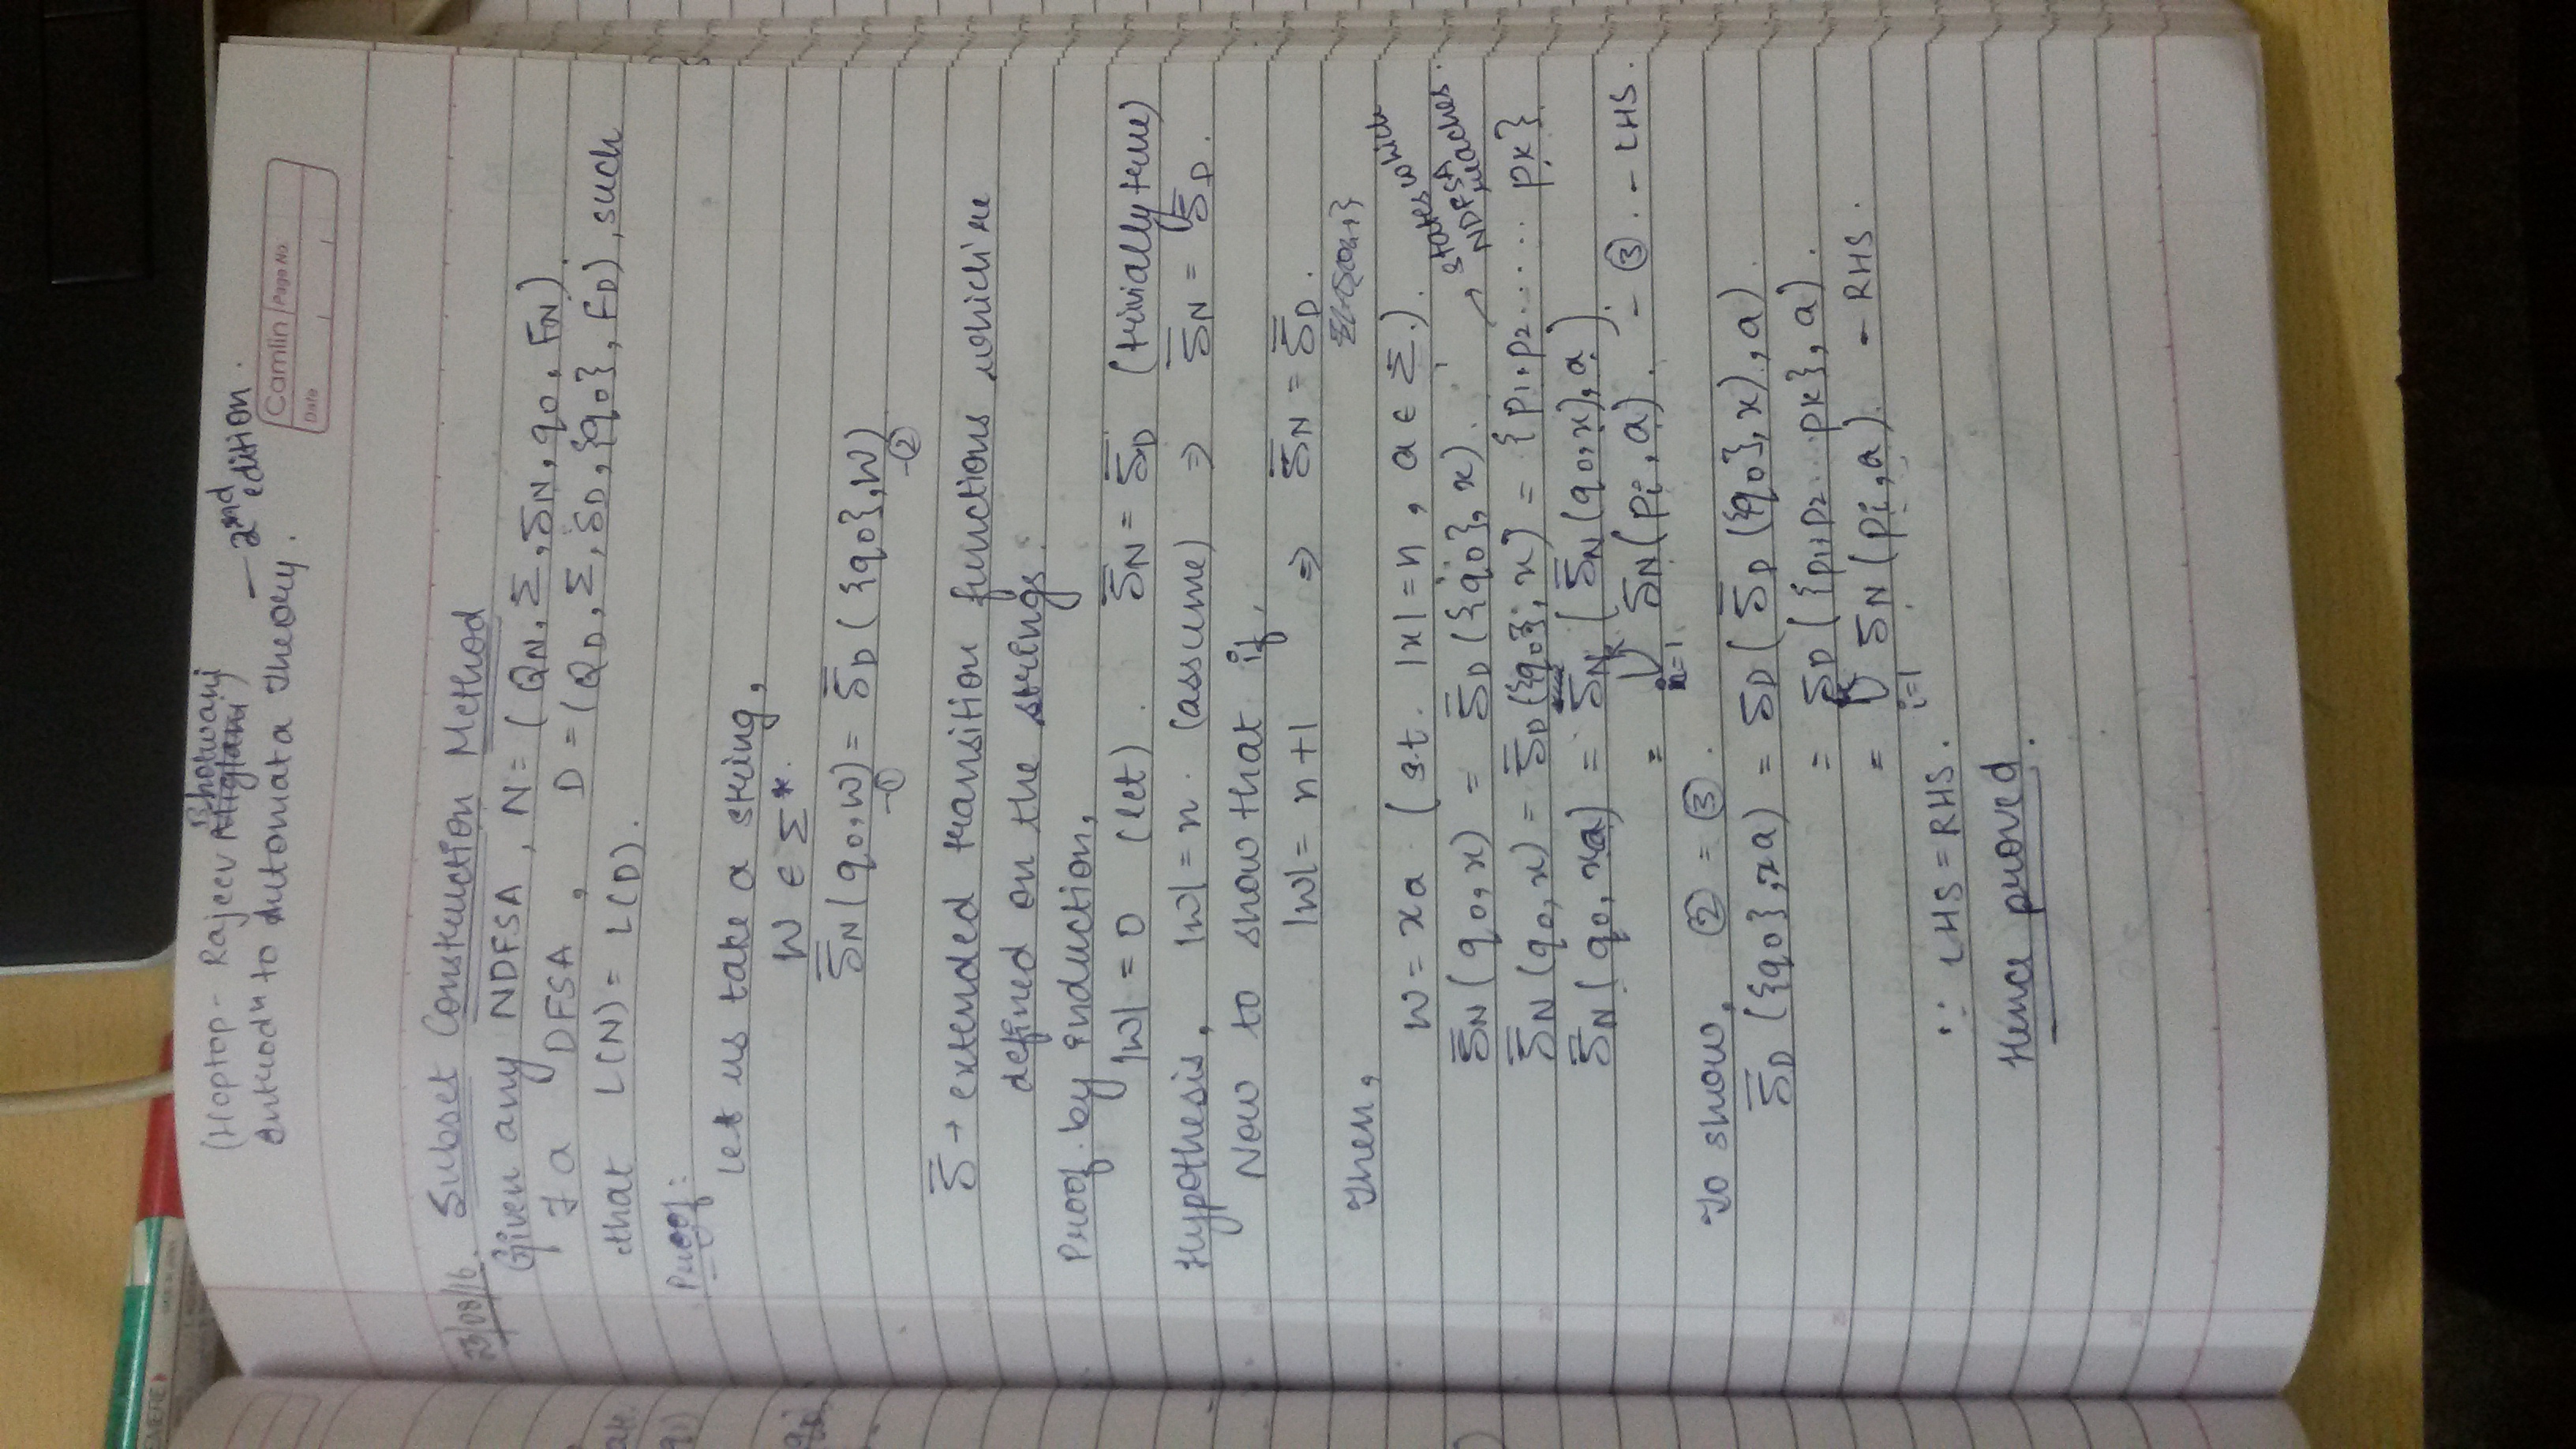 EMERE
Bhotwani
(Hoptop - Rajeev Miglani) - 2nd edition.
Introdⁿ to Automata Theory.
Camlin Page No.
Date
23/08/16. Subset Construction Method
Given any NDFSA, N = (QN, Σ, δN, q0, FN).
∃ a DFSA, D = (QD, Σ, δD, {q0}, FD), such
that L(N) = L(D).
Proof:
Let us take a string,
W ∈ Σ*.
δ̿N(q0, w) = δ̿D({q0}, w)
-① -②
δ̿ → extended transition functions which're
defined on the strings.
Proof by induction,
|w| = 0 (let). δ̿N = δ̿D (trivially true)
Hypothesis, |w| = n. (assume) ⇒ δ̿N = δ̿D.
Now to show that if,
|w| = n+1 ⇒ δ̿N = δ̿D.
Then,
w = xa (s.t. |x| = n, a ∈ Σ.).
δ̿N(q0, x) = δ̿D({q0}, x).
→ states which NDFSA reaches.
δ̿N(q0, x) = δ̿D({q0}, x) = {p1, p2 ...... pk}
δ̿N(q0, xa) = δ̿N(δ̿N(q0, x), a)
= ⋃ᵏi=1 δN(pi, a). - ③. - LHS.
To show, ② = ③.
δ̿D({q0}, xa) = δD(δ̿D({q0}, x), a).
= δD({p1, p2... pk}, a).
= ⋃ᵏi=1 δN(pi, a). - RHS.
∵ LHS = RHS.
Hence proved.